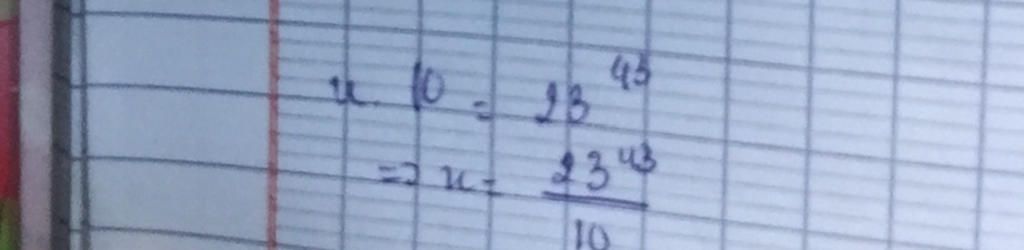 x. 10 = 23^43
=> x = 23^43
10